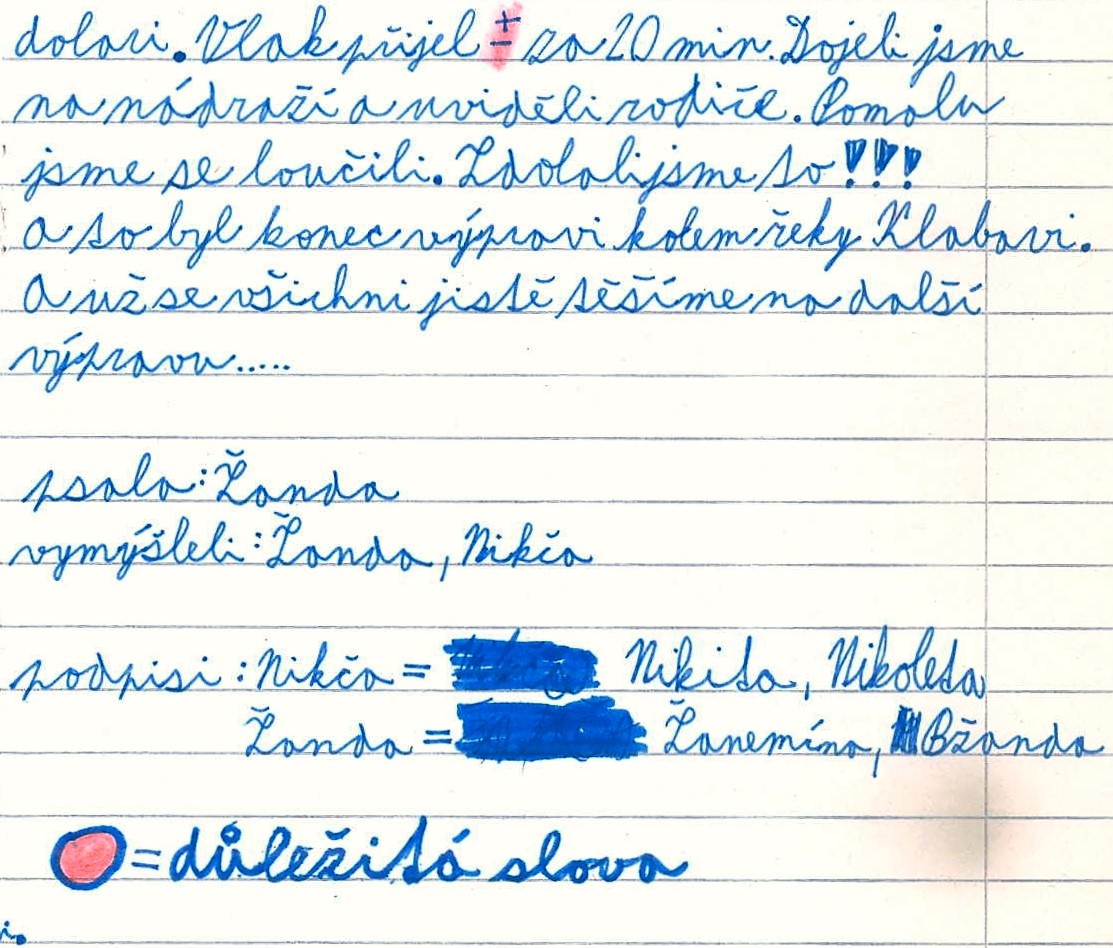 dolari. Vlak přijel ± za 20 min. Dojeli jsme
na nádraží a uviděli rodiče. Pomalu
jsme se loučili. Zdolali jsme to!!!
A to byl konec výpravi kolem řeky Klabavi.
A už se všichni jistě těšíme na další
výpravu.....
psala: Žanda
vymýšleli: Žanda, Nikča
podpisi: Nikča = Nikita, Nikoleta
Žanda = Žanemína, Bžanda
= důležitá slova